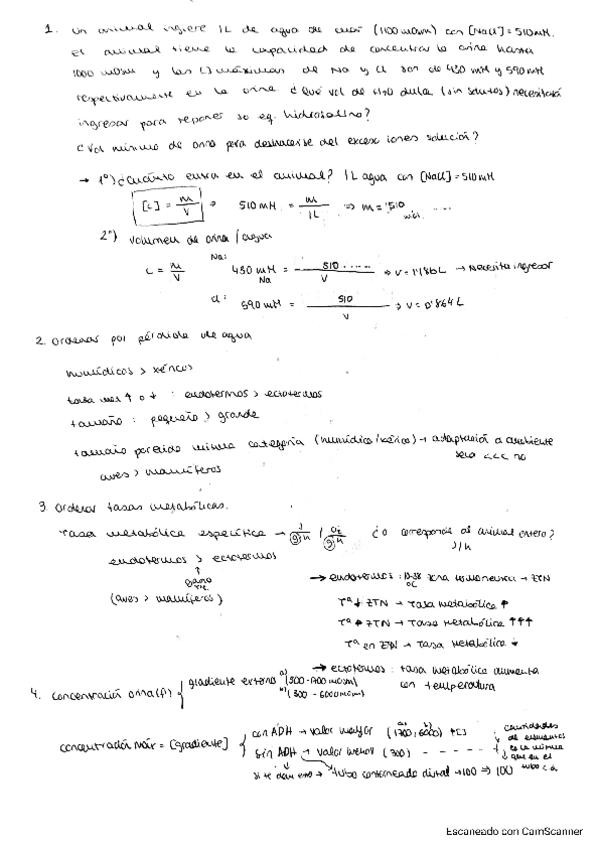 1. Un animal ingiere 1L de agua de mar (1100 mOsm) con [NaCl] = 510 mM.
El animal tiene la capacidad de concentrar la orina hasta
1000 mOsm y las [] máximas de Na y Cl son de 430 mM y 590 mM
respectivamente en la orina ¿Qué vol de H2O dulce (sin solutos) necesitará
ingresar para reponer su eq. hidrosalino?
¿Vol mínimo de orina para deshacerse del exceso iones solución?
→ 1º) ¿Cuánto entra en el animal? 1L agua con [NaCl] = 510 mM
[c] = m/V ⇒ 510 mM = m/1L ⇒ m = 510
2º) Volumen de orina / agua
c = m/V Na: 430 mM Na = 510 ..... / V ⇒ V = 1'186 L → Necesita ingresar
Cl: 590 mM = 510 / V ⇒ V = 0'864 L
2. Ordenar por pérdida de agua
húmedicos > xéricos
tasa met ↑ o ↓ : endotermos > ectotermos
tamaño : pequeño > grande
tamaño parecido misma categoría (humídico/xérico) → adaptación a ambiente
seco <<< no
aves > mamíferos
3. Ordenar tasas metabólicas.
Tasa metabólica específica → J/g·h / O2/g·h ¿o corresponde al animal entero?
J/h
endotermos > ectotermos
(aves > mamíferos)
→ endotermos: zona termoneutra → ZTN
Tª ↓ ZTN → Tasa metabólica ↑
Tª ↑ ZTN → Tasa metabólica ↑↑↑
Tª en ZTN → Tasa metabólica ↓
→ ectotermos: tasa metabólica aumenta
con temperatura
4. concentración orina (P) { gradiente externo a) (300-1700 mOsm)
b) (300-6000 mOsm)
concentración máx = [gradiente] { con ADH → valor mayor (1700, 6000) ↑[]
sin ADH → valor menor (300) - - - - -
túbulo contorneado distal → 100 ⇒ 100
cantidades
de
es la misma
que en el
tubo
Escaneado con CamScanner